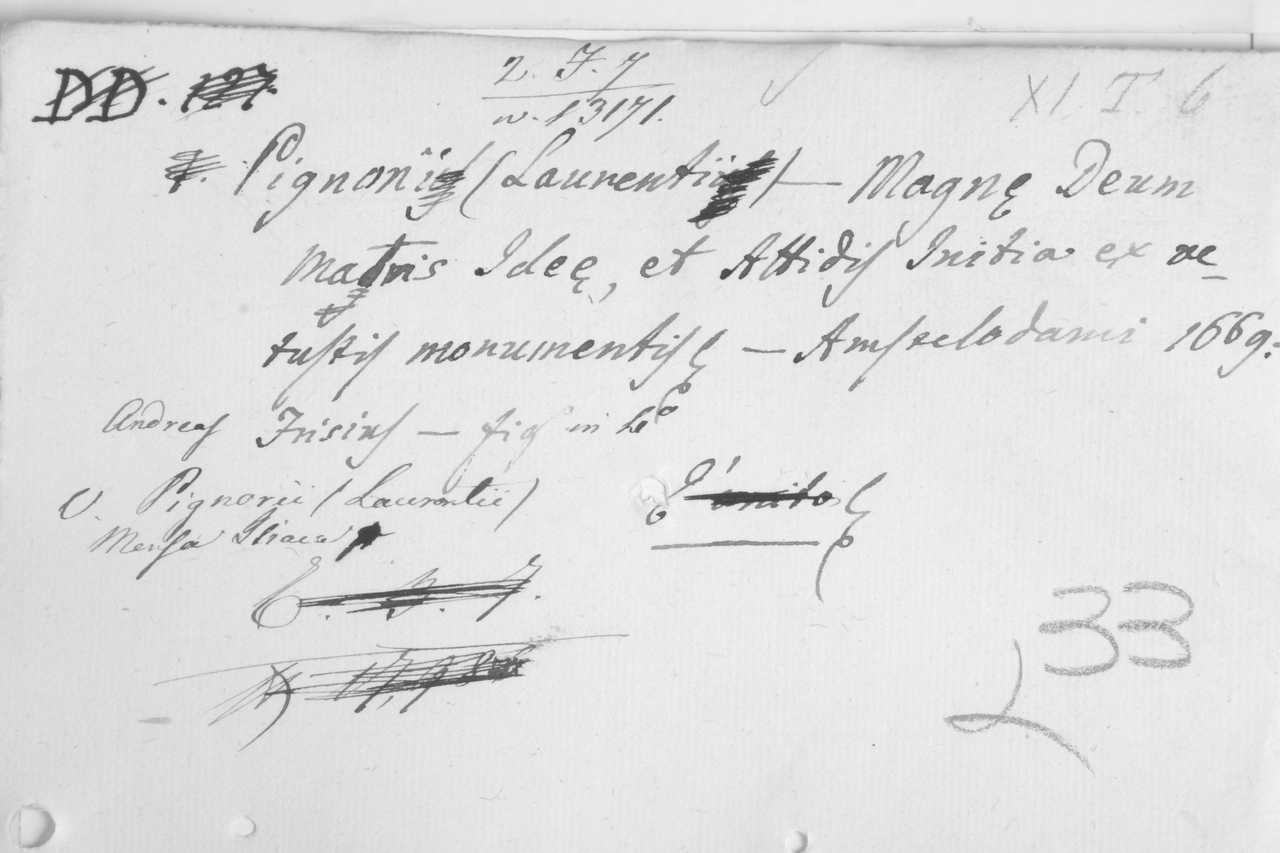 DD. 127. 2. F. 7 XI. T. 6
n. 13171.
Pignorii (Laurentii) — Magnę Deum
Matris Ideę, et Attidis Initia ex ve-
tustis monumentis — Amstelodami 1669.
Andreas Frisius — fig in 4º
V. Pignorii (Laurentii) È unito
Mensa Isiaca
33